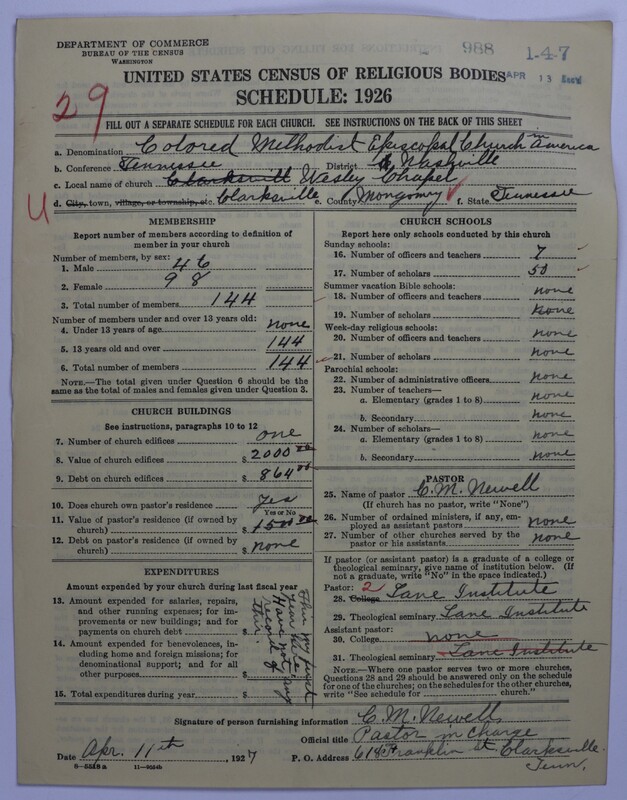 DEPARTMENT OF COMMERCE
BUREAU OF THE CENSUS
WASHINGTON
988 1-4-7
APR 13
UNITED STATES CENSUS OF RELIGIOUS BODIES
SCHEDULE: 1926
29
FILL OUT A SEPARATE SCHEDULE FOR EACH CHURCH. SEE INSTRUCTIONS ON THE BACK OF THIS SHEET
a. Denomination Colored Methodist Episcopal Church in America
b. Conference Tennessee District Nashville
c. Local name of church Clarksvill Wesley Chapel
U
d. City, town, village, or township, etc. Clarksville e. County Mongomry f. State Tennessee
MEMBERSHIP
Report number of members according to definition of
member in your church
Number of members, by sex:
1. Male 46
2. Female 98
3. Total number of members 144
Number of members under and over 13 years old:
4. Under 13 years of age none
5. 13 years old and over 144
6. Total number of members 144
NOTE.—The total given under Question 6 should be the
same as the total of males and females given under Question 3.
CHURCH BUILDINGS
See instructions, paragraphs 10 to 12
7. Number of church edifices one
8. Value of church edifices $ 2000 00
9. Debt on church edifices $ 864 00
10. Does church own pastor's residence Yes
Yes or No
11. Value of pastor's residence (if owned by
church) $ 1500 00
12. Debt on pastor's residence (if owned by
church) $ none
EXPENDITURES
Amount expended by your church during last fiscal year
13. Amount expended for salaries, repairs,
and other running expenses; for im-
provements or new buildings; and for
payments on church debt $
14. Amount expended for benevolences, in-
cluding home and foreign missions; for
denominational support; and for all
other purposes $
15. Total expenditures during year $
This my first
year here
Have not any
record of
this.
CHURCH SCHOOLS
Report here only schools conducted by this church
Sunday schools:
16. Number of officers and teachers 7
17. Number of scholars 50
Summer vacation Bible schools:
18. Number of officers and teachers none
19. Number of scholars none
Week-day religious schools:
20. Number of officers and teachers none
21. Number of scholars none
Parochial schools:
22. Number of administrative officers none
23. Number of teachers—
a. Elementary (grades 1 to 8) none
b. Secondary none
24. Number of scholars—
a. Elementary (grades 1 to 8) none
b. Secondary none
PASTOR
25. Name of pastor C. M. Newell
(If church has no pastor, write "None")
26. Number of ordained ministers, if any, em-
ployed as assistant pastors none
27. Number of other churches served by the
pastor or his assistants none
If pastor (or assistant pastor) is a graduate of a college or
theological seminary, give name of institution below. (If
not a graduate, write "No" in the space indicated.)
Pastor: 2
28. College Lane Institute
29. Theological seminary Lane Institute
Assistant pastor:
30. College none
31. Theological seminary Lane Institute
NOTE.—Where one pastor serves two or more churches,
Questions 28 and 29 should be answered only on the schedule
for one of the churches; on the schedules for the other churches,
write "See schedule for church."
Signature of person furnishing information C. M. Newell
Official title Pastor in Charge
Date Apr. 11th, 1927 P. O. Address 618 Franklin st. Clarksville
Tenn.
8-5518a 11-9054b